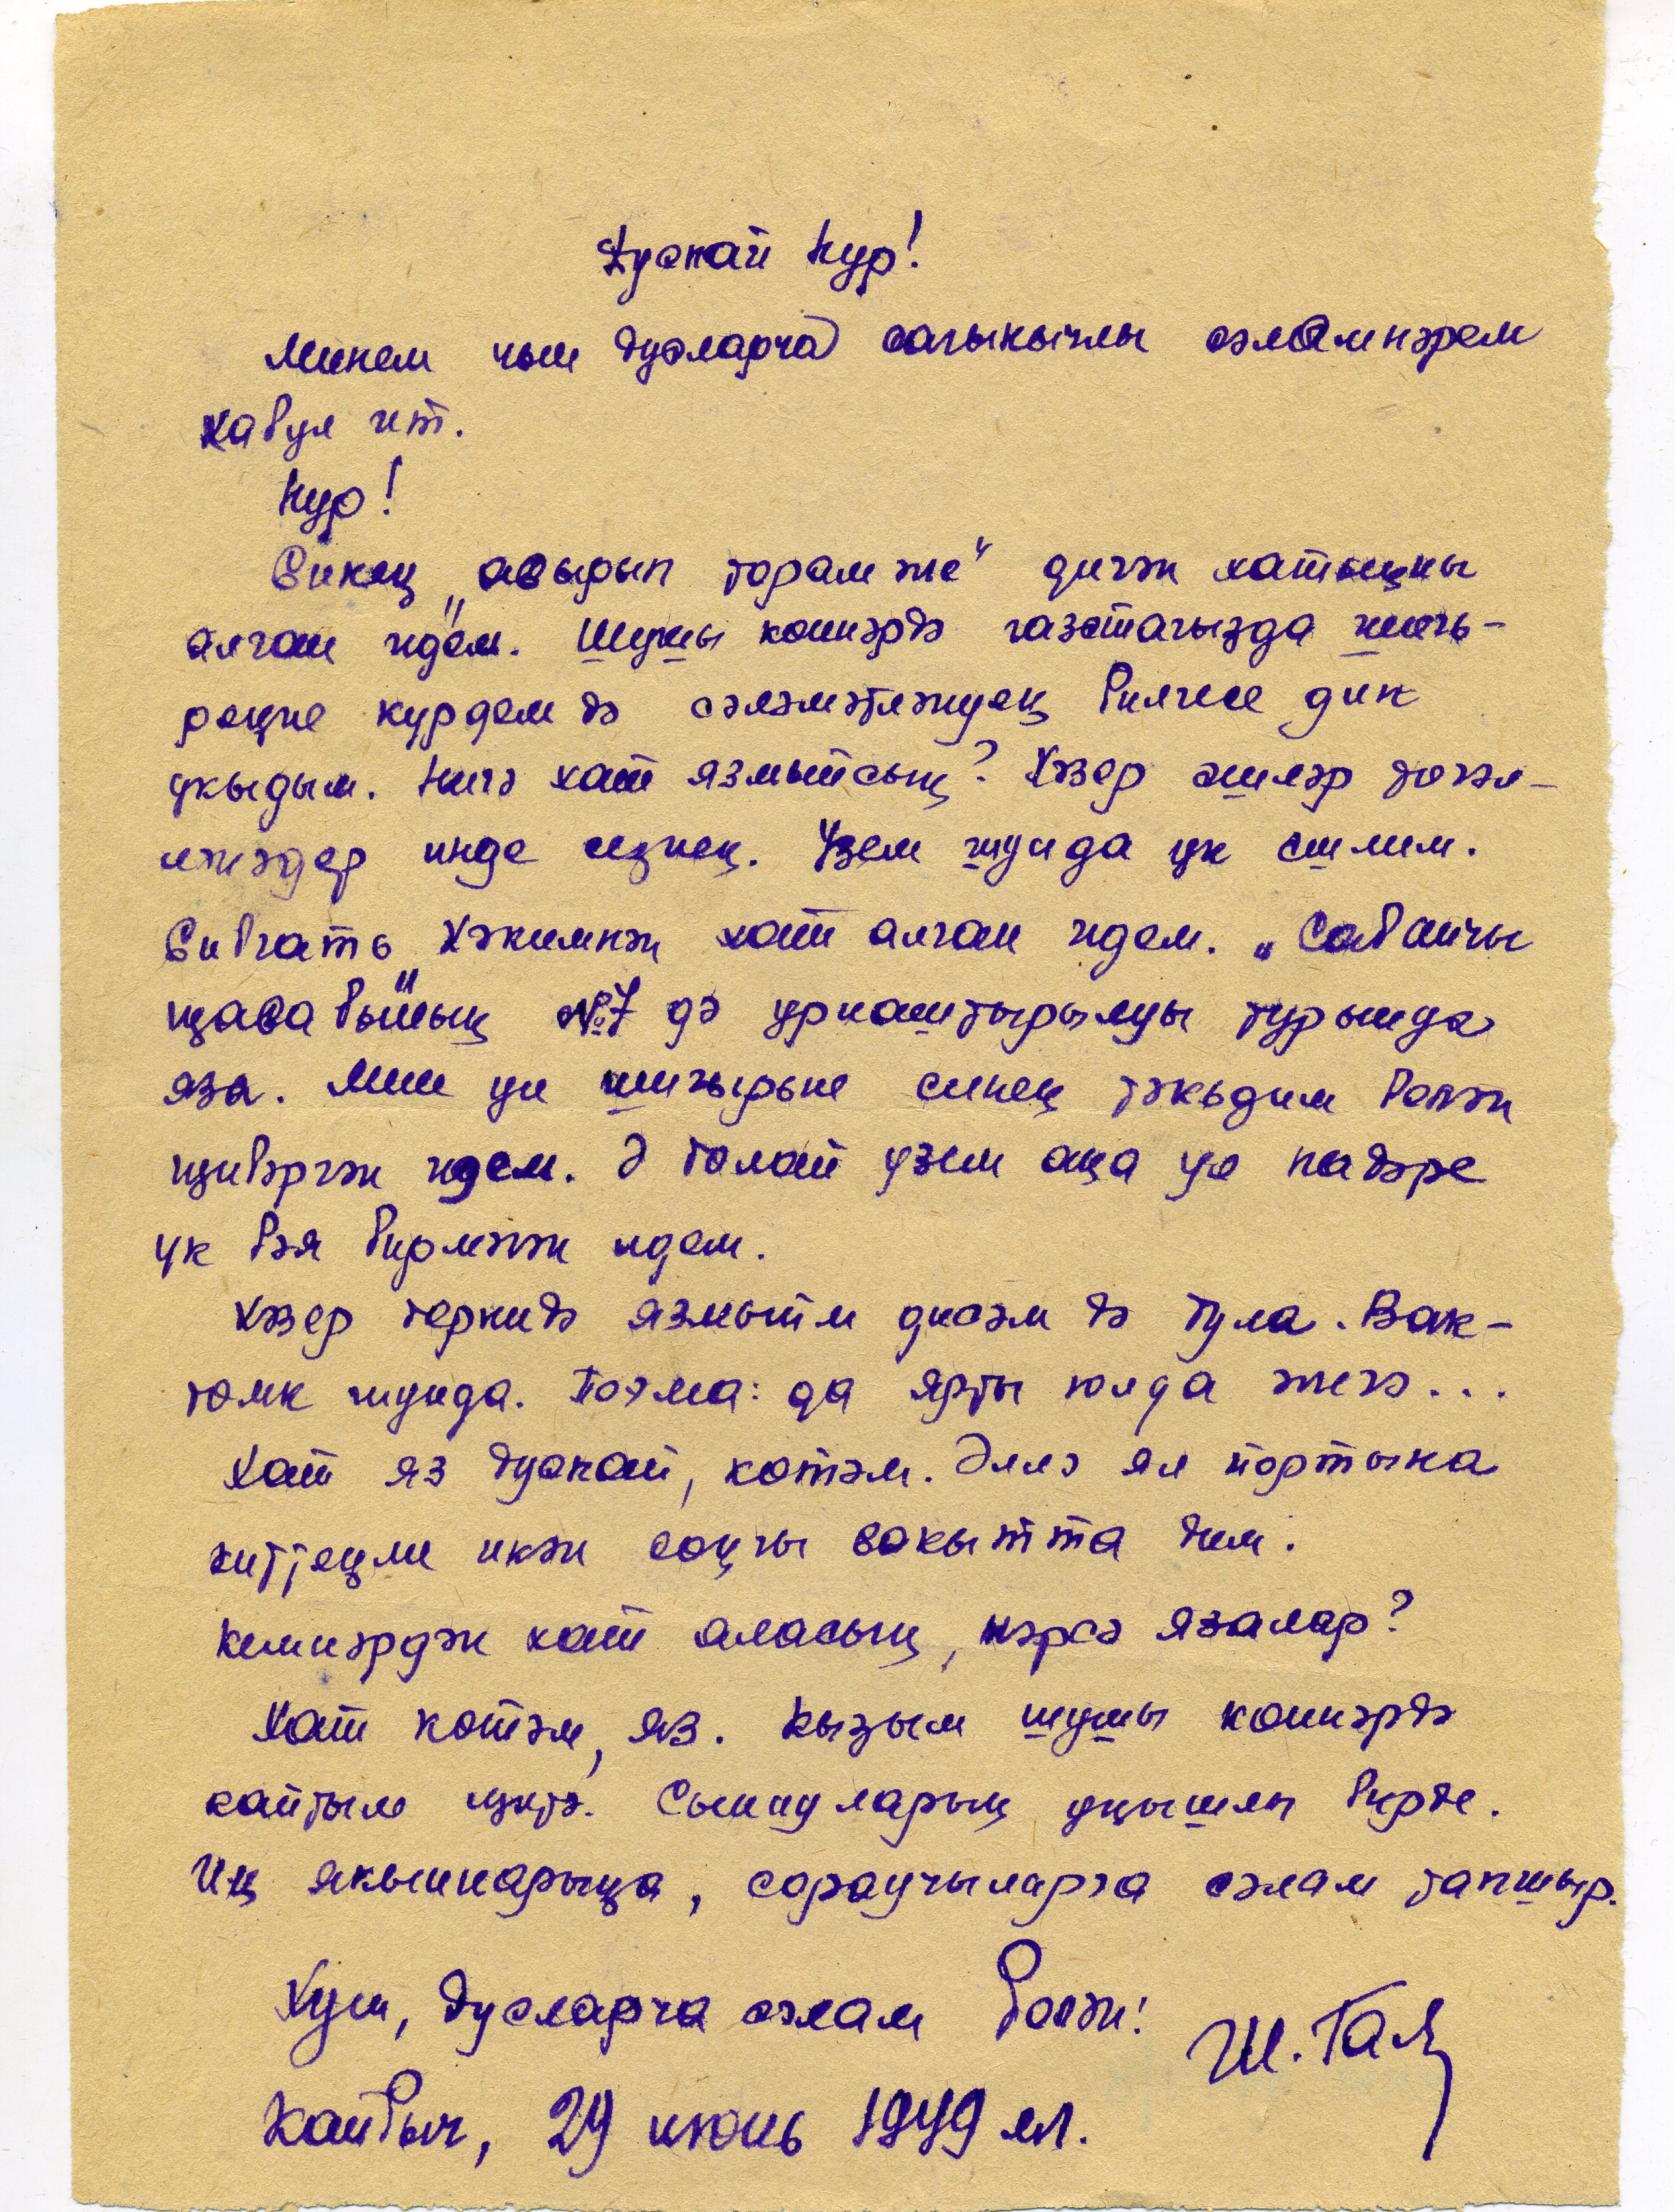 Дускай Нур!
Минем чын дусларча сагынычлы сәламнәрем
кабул ит.
Нур!
Синең „авырып торам әле“ дигән хатыңны
алган идем. Шушы көннәрдә газетагызда шигъ-
реңне күрдем дә сәламәтләнүең билгесе дип
укыдым. Нигә хат язмыйсың? Хәзер эшләр төгәл-
ләнгәндер инде сезнең. Үзем шунда ук эшлим.
Сибгать Хәкимнән хат алган идем. „Сабанчы
җавабы“ның №7 дә урнаштырылуы турында
яза. Мин ул шигырьне синең тәкъдим белән
җибәргән идем. Ә болай үзем аңа ул кадәре
үк бәя бирмәгән идем.
Хәзер бернидә язмыйм дисәм дә була. Вак-
төяк шунда. Поэма да ярты юлда әле...
Хат яз дускай, көтәм. Әллә ял йортына
киттеңме икән соңгы вакытта дим.
Кемнәрдән хат аласың, нәрсә язалар?
Хат көтәм, яз. Кызым шушы көннәрдә
кайтып җитә. Сынауларын уңышлы бирде.
Иң якыннарыңа, сораучыларга сәлам тапшыр.
Хуш, дусларча сәлам белән!
Ш. Гал
Кайбыч, 29 июнь 1949 ел.